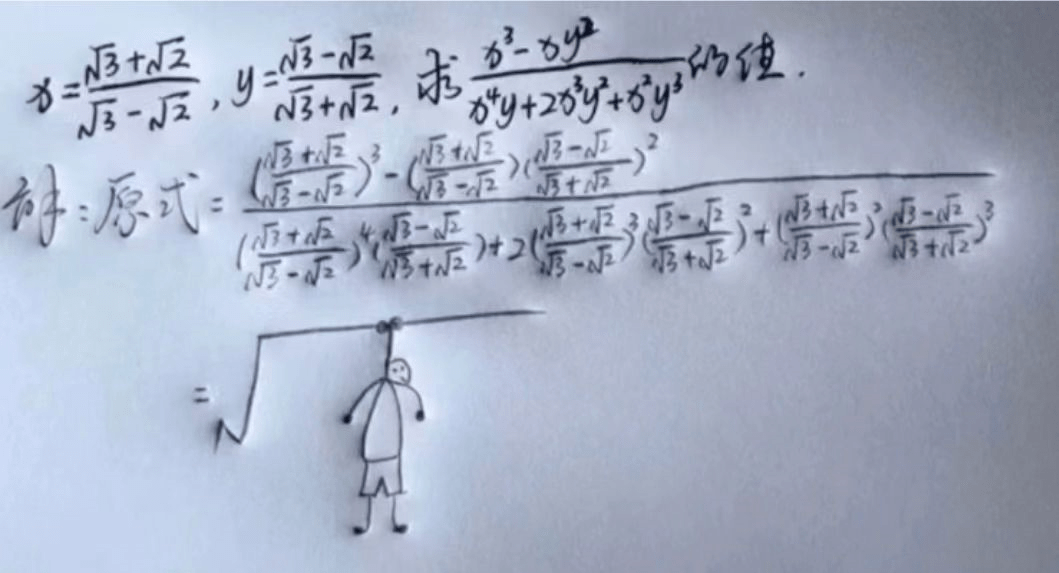 x=(√3+√2)/(√3-√2), y=(√3-√2)/(√3+√2), 求 (x³-xy²)/(x⁴y+2x³y²+x²y³) 的值.
解:原式= [((√3+√2)/(√3-√2))³-((√3+√2)/(√3-√2))((√3-√2)/(√3+√2))²]/[((√3+√2)/(√3-√2))⁴((√3-√2)/(√3+√2))+2((√3+√2)/(√3-√2))³((√3-√2)/(√3+√2))²+((√3+√2)/(√3-√2))²((√3-√2)/(√3+√2))³]
=√